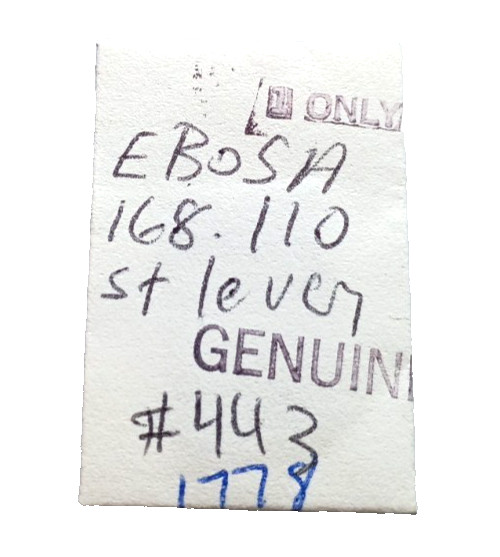 1 ONLY
EBOSA
168.110
st lever
GENUIN
#443
1778